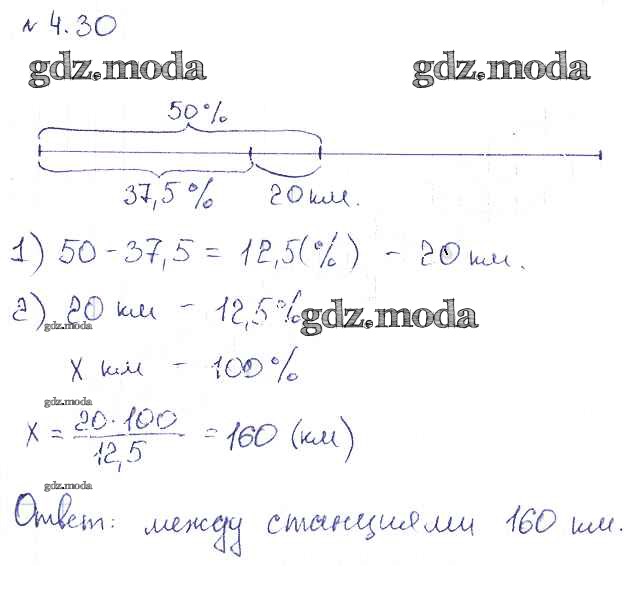 № 4.30
gdz.moda gdz.moda
50%
37,5% 20км.
1) 50 - 37,5 = 12,5(%) - 20 км.
2) 20 км - 12,5%
gdz.moda gdz.moda
x км - 100%
gdz.moda
x = 20·100/12,5 = 160 (км)
gdz.moda
Ответ: между станциями 160 км.